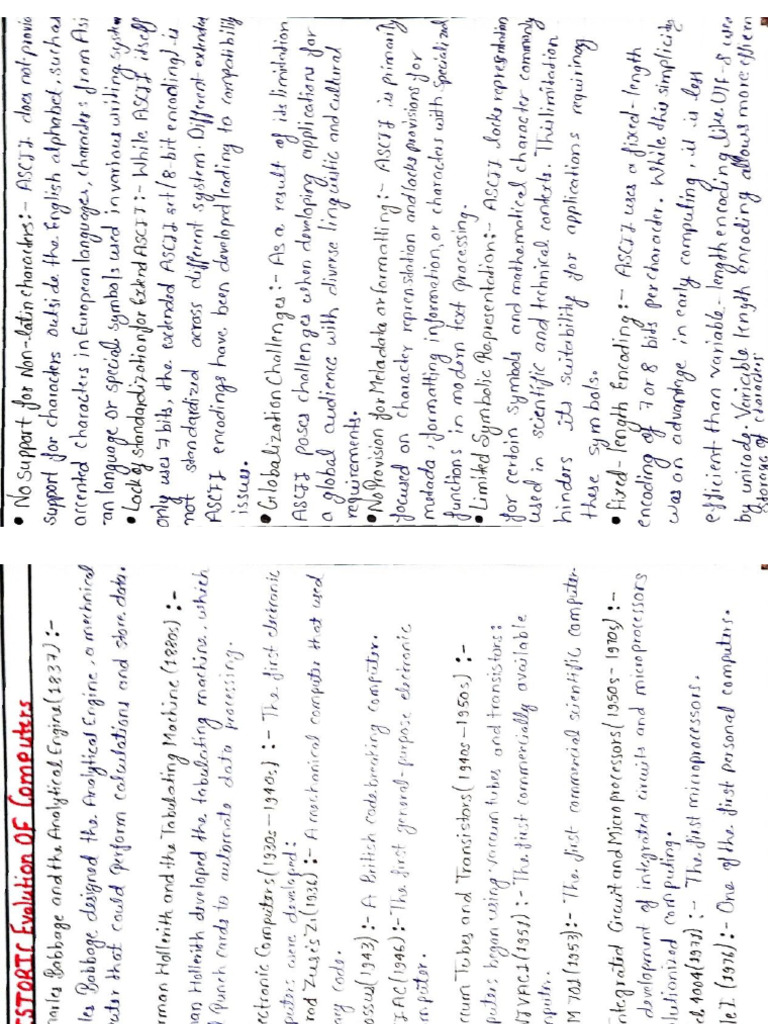 • No Support for Non-Latin characters:- ASCII does not provi
support for characters outside the English alphabet, such as
accented characters in European languages, characters from Asi
an language or special symbols used in various writing system
• Lack of standardization for Extend ASCII:- While ASCII itself
only uses 7 bits, the extended ASCII set/8-bit encoding) is
not standardized across different system. Different extended
ASCII encodings have been developed leading to compatibility
issues.
• Globalization Challenges:- As a result of its limitation
ASCII poses challenges when developing applications for
a global audience with diverse linguistic and cultural
requirements.
• No Provision for Metadata or formatting:- ASCII is primarily
focused on character representation and lacks provisions for
metadata, formatting information, or characters with specialized
functions in modern text processing.
• Limited Symbolic Representation:- ASCII lacks representation
for certain symbols and mathematical character commonly
used in scientific and technical contexts. This limitation
hinders its suitability for applications requiring
these symbols.
• Fixed-length Encoding:- ASCII uses a fixed-length
encoding of 7 or 8 bits per character. While this simplicity
was an advantage in early computing, it is less
efficient than variable-length encoding like UTF-8 use
by unicode. Variable length encoding allows more efficien
storage of characters
ISTORIC Evolution OF Computers
harles Babbage and the Analytical Engine (1837):-
les Babbage designed the Analytical Engine, a mechnical
uter that could perform calculations and store data.
rman Hollerith and the Tabulating Machine (1880s):-
nan Hollerith developed the tabulating machine, which
Punch cards to automate data processing.
ectronic Computers (1930s-1940s):- The first electronic
puters were developed:
rad Zuse's Z1 (1936):- A mechanical computer that used
ary code.
ossus (1943):- A British codebreaking computer.
IAC (1946):- The first general-purpose electronic
mputer.
cuum Tubes and Transistors (1940s-1950s):-
puters began using vaccum tubes and transistors:
IVAC1 (1951):- The first commercially available
mputer.
M 701 (1953):- The first commercial scientific computer
ntegrated Circuit and Microprocessors (1950s-1970s):-
development of integrated circuits and microprocessors
lutionized computing.
el 4004 (1971):- The first microprocessors.
le I (1976):- One of the first personal computers.